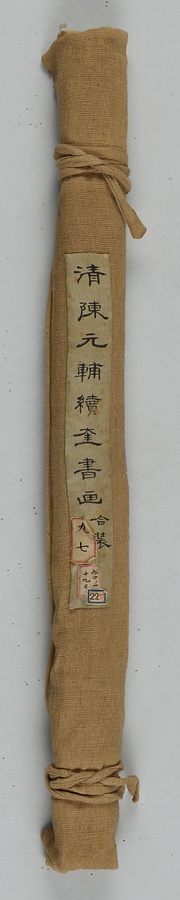 清陳元輔續奎書画合装
九七
22